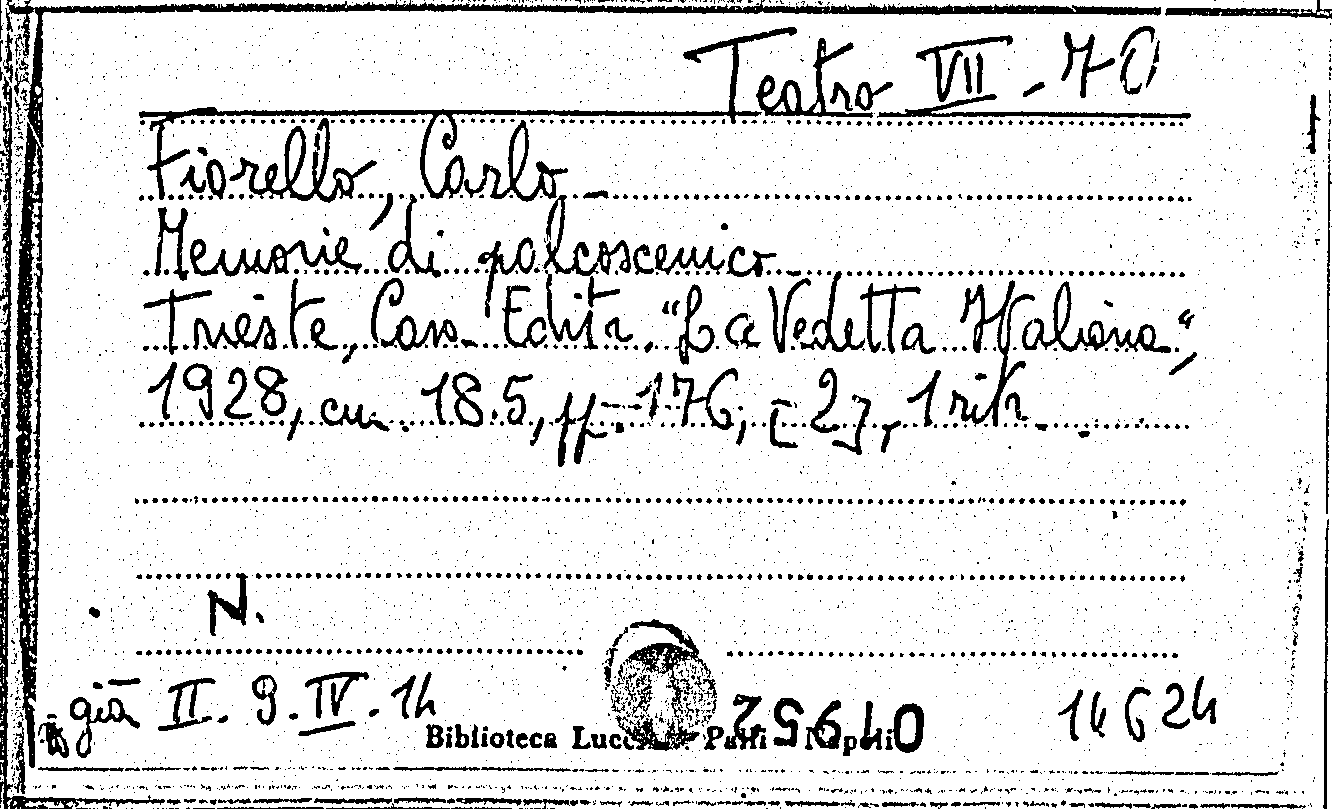 Teatro VII - 70
Fiorello, Carlo -
Memorie di palcoscenico -
Trieste, Casa Editr. "La Vedetta Italiana",
1928, cm. 18.5, pp. 176, [2], 1 ritr.
N.
già II. 9. IV. 14
Biblioteca Napoli
14624